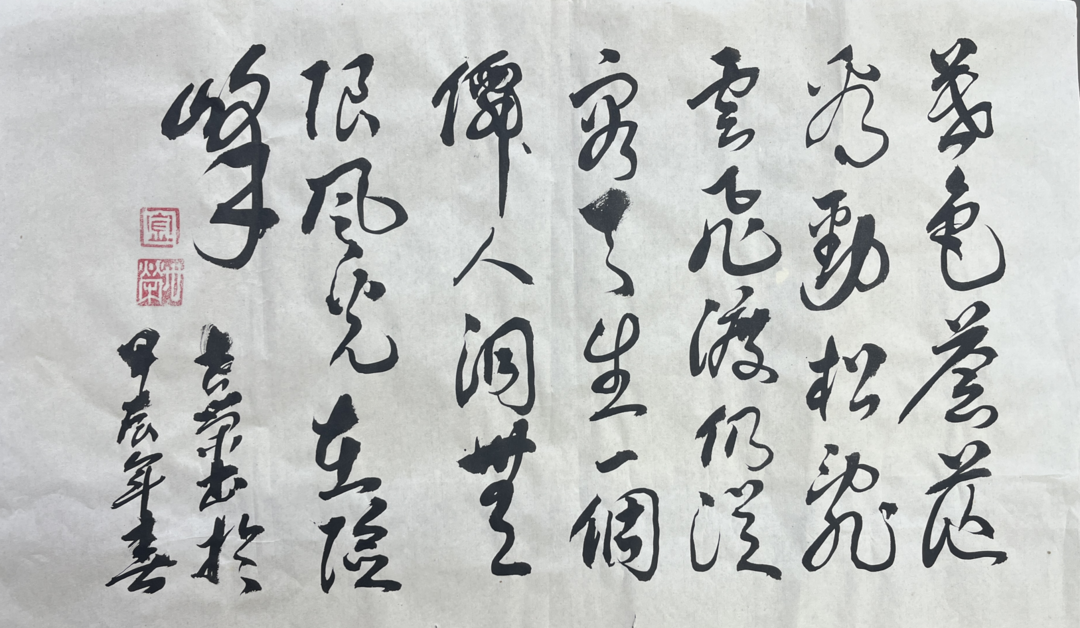 暮色蒼茫
看勁松亂
雲飛渡仍從
容天生一個
僊人洞無
限風光在險
峰
吉榮書於
甲辰年春